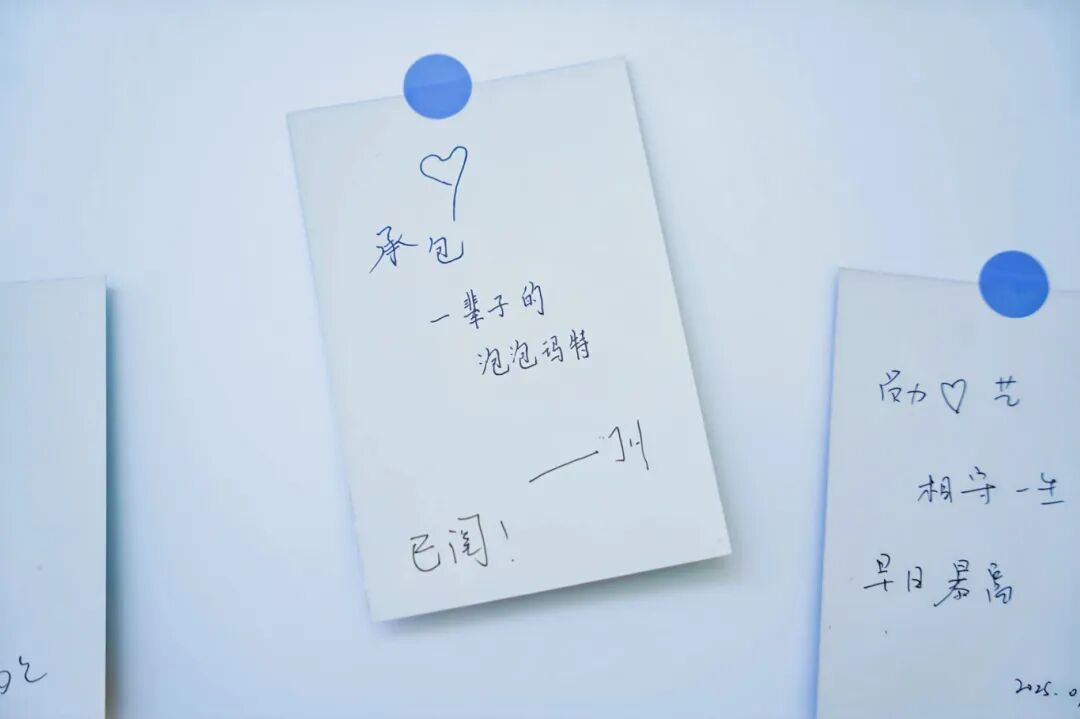 承包
一辈子的
泡泡玛特
已阅!
♡ 艺
相守一生
早日暴富
2025.0